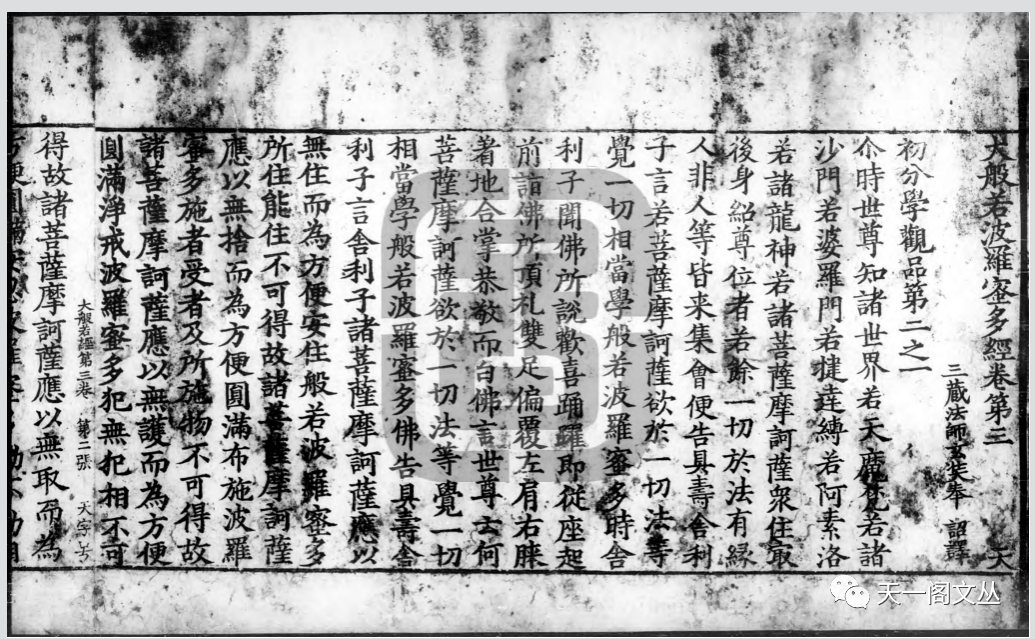 大般若波羅蜜多經卷第三 天
三藏法師玄奘奉 詔譯
初分學觀品第二之一
尒時世尊知諸世界若天魔梵若諸
沙門若婆羅門若揵達縛若阿素洛
若諸龍神若諸菩薩摩訶薩衆住冣
後身紹尊位者若餘一切於法有緣
人非人等皆来集會便告具壽舎利
子言若菩薩摩訶薩欲於一切法等
覺一切相當學般若波羅蜜多時舎
利子聞佛所說歡喜踊躍即從座起
前詣佛所頂礼雙足偏覆左肩右膝
著地合掌恭敬而白佛言世尊云何
菩薩摩訶薩欲於一切法等覺一切
相當學般若波羅蜜多佛告具壽舎
利子言舎利子諸菩薩摩訶薩應以
無住而為方便安住般若波羅蜜多
所住能住不可得故諸菩薩摩訶薩
應以無捨而為方便圓滿布施波羅
蜜多施者受者及所施物不可得故
諸菩薩摩訶薩應以無護而為方便
圓滿淨戒波羅蜜多犯無犯相不可
大般若經第三卷 第二張 天字号
得故諸菩薩摩訶薩應以無取而為
天一阁文丛